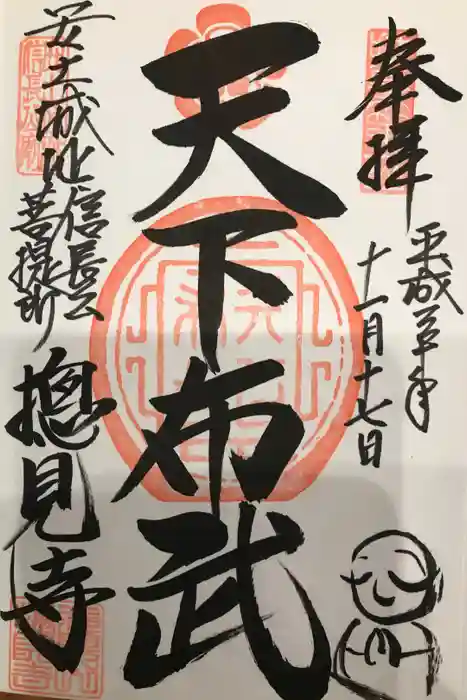 奉拝
平成 年
十一月十七日
天下布武
安土城址
信長公
菩提所
摠見寺